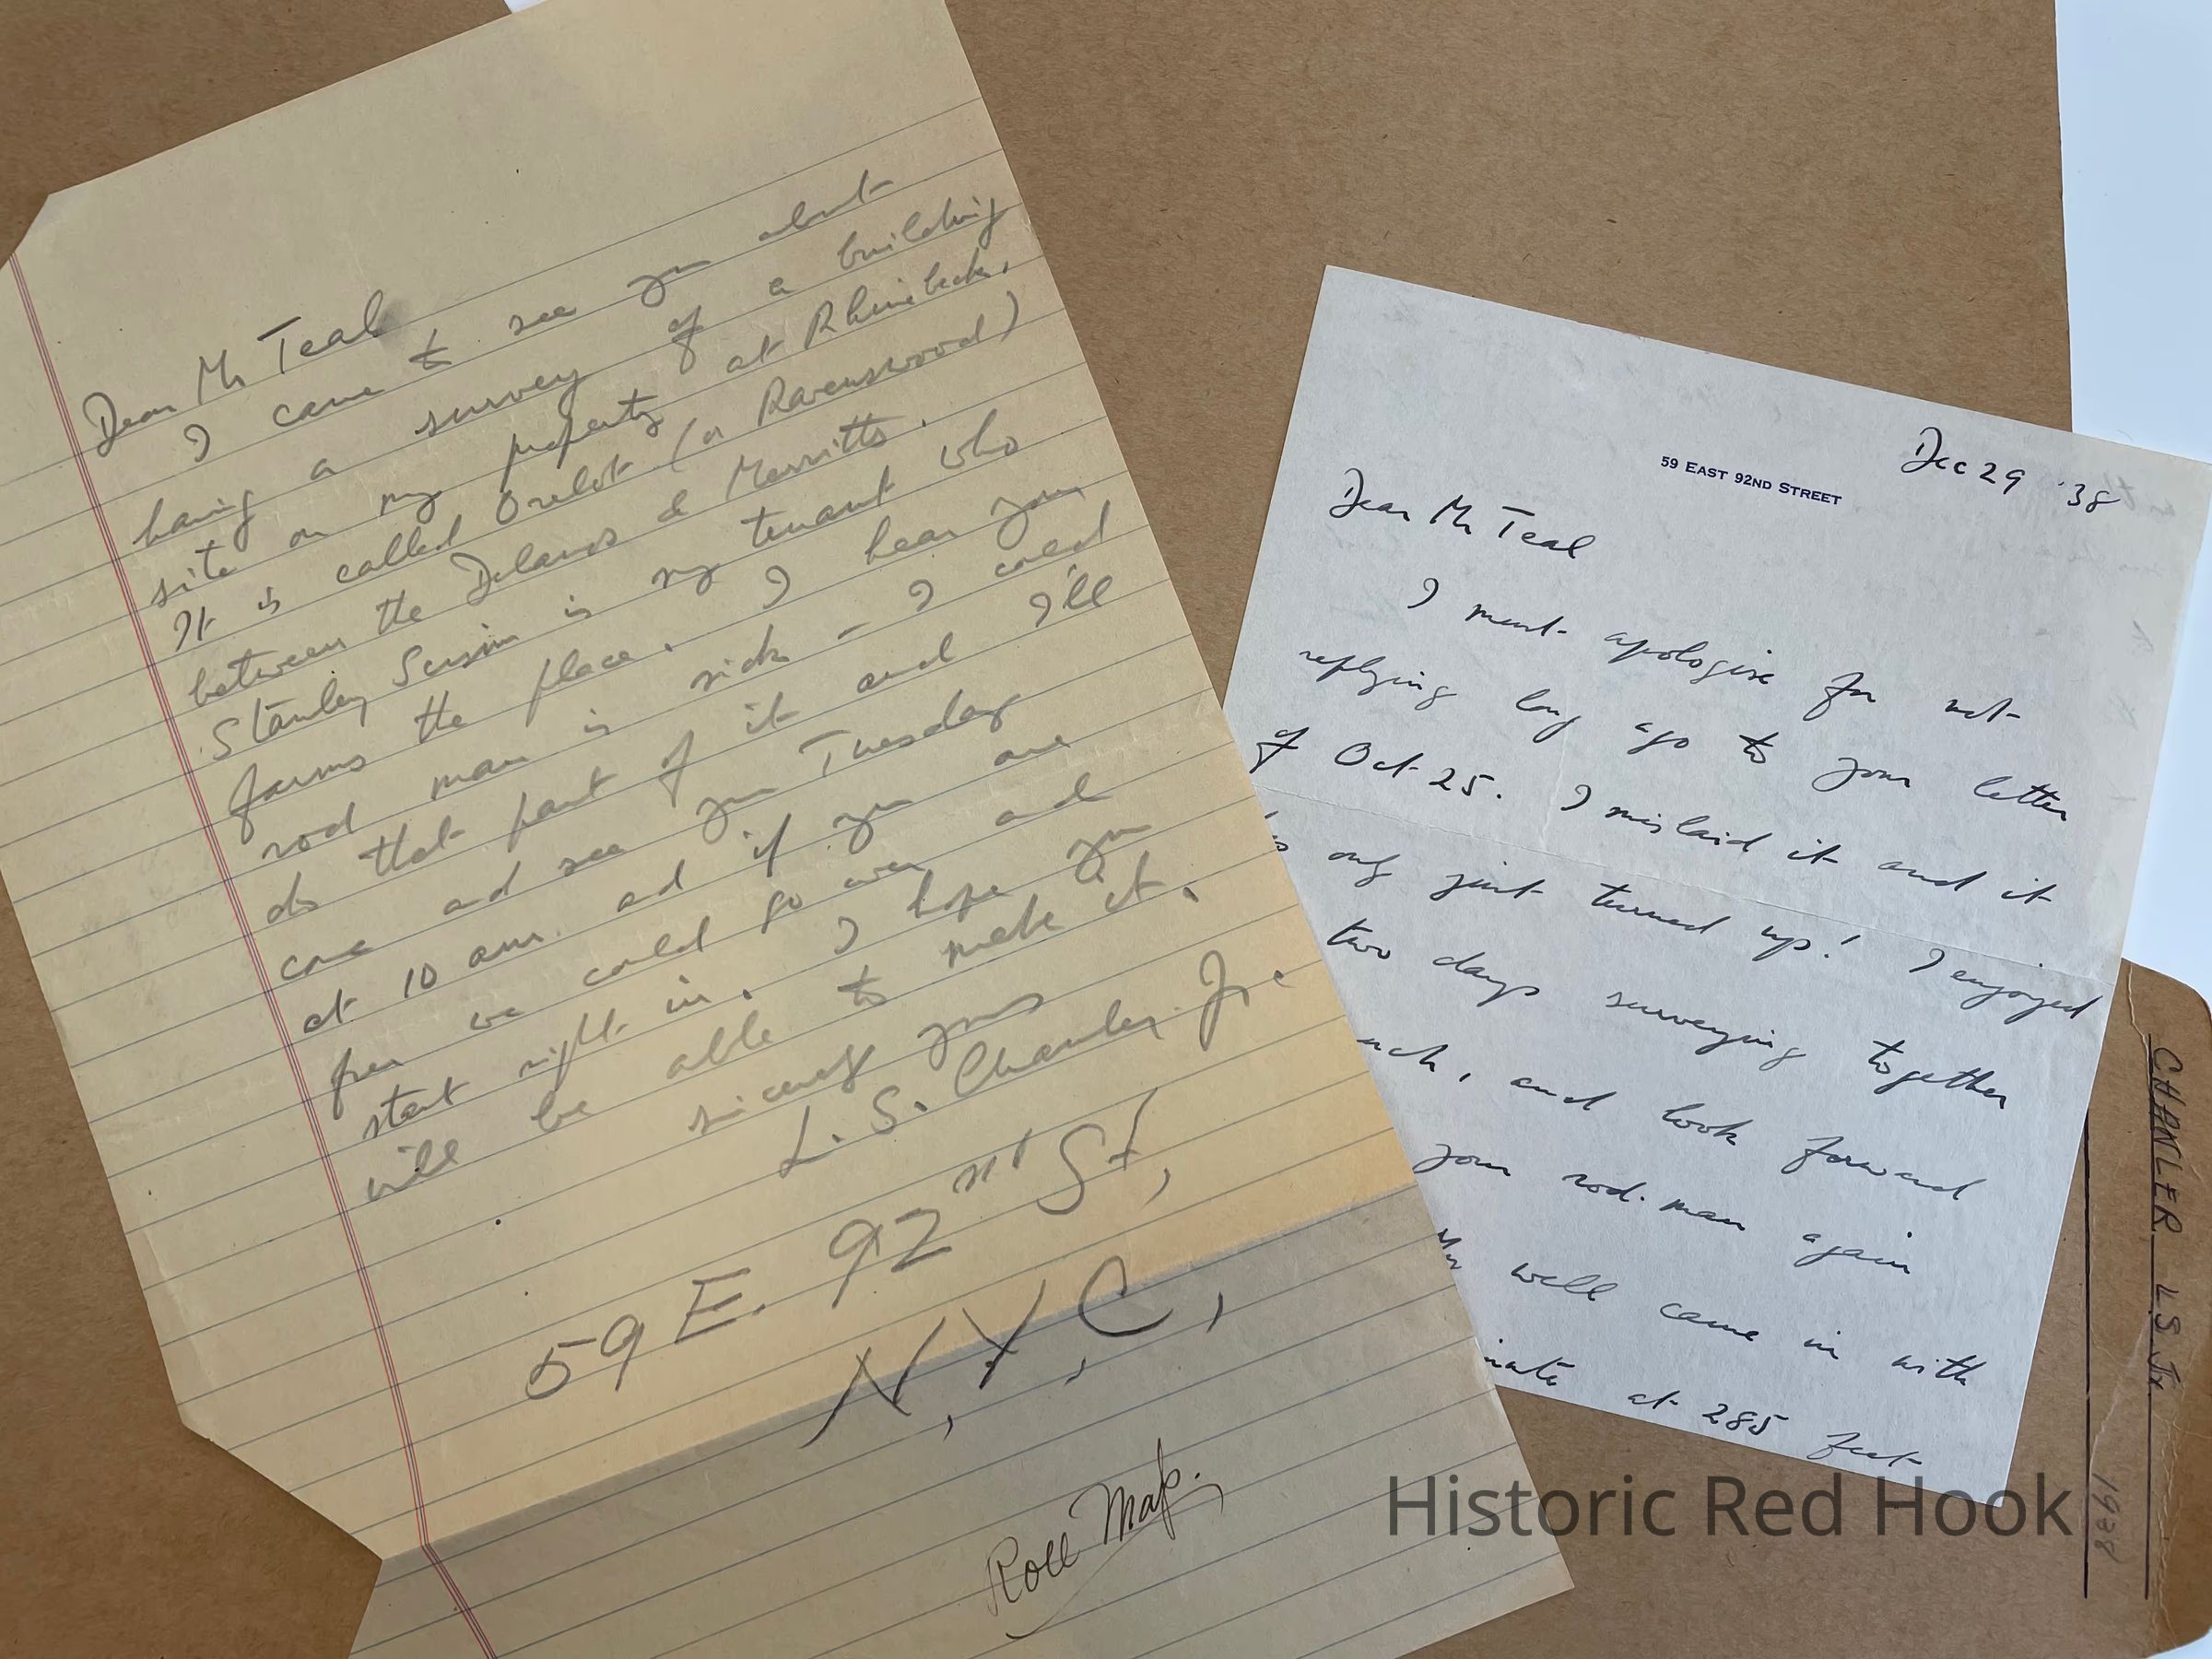 Dear Mr Teal
I came to see you about
having a survey of a building
site on my property at Rhinebeck.
It is called Orelot (or Ravenswood)
between the Delanos & Merritts.
Stanley Susin is my tenant who
farms the place. I hear your
rod man is sick – I could
do that part of it and I'll
come and see you Tuesday
at 10 am. and if you are
free we could go over and
start right in. I hope you
will be able to make it.
sincerely yours
L. S. Chanler Jr.
59 E. 92nd St,
N,Y,C,
Roll Map.
59 EAST 92ND STREET
Dec 29 '38
Dear Mr Teal
I must apologise for not
replying long ago to your letter
of Oct 25. I mislaid it and it
only just turned up! I enjoyed
two days surveying together
and look forward
your rod-man again
well came in with
at 285 feet
CHANLER L.S. Jr.
1938
Historic Red Hook